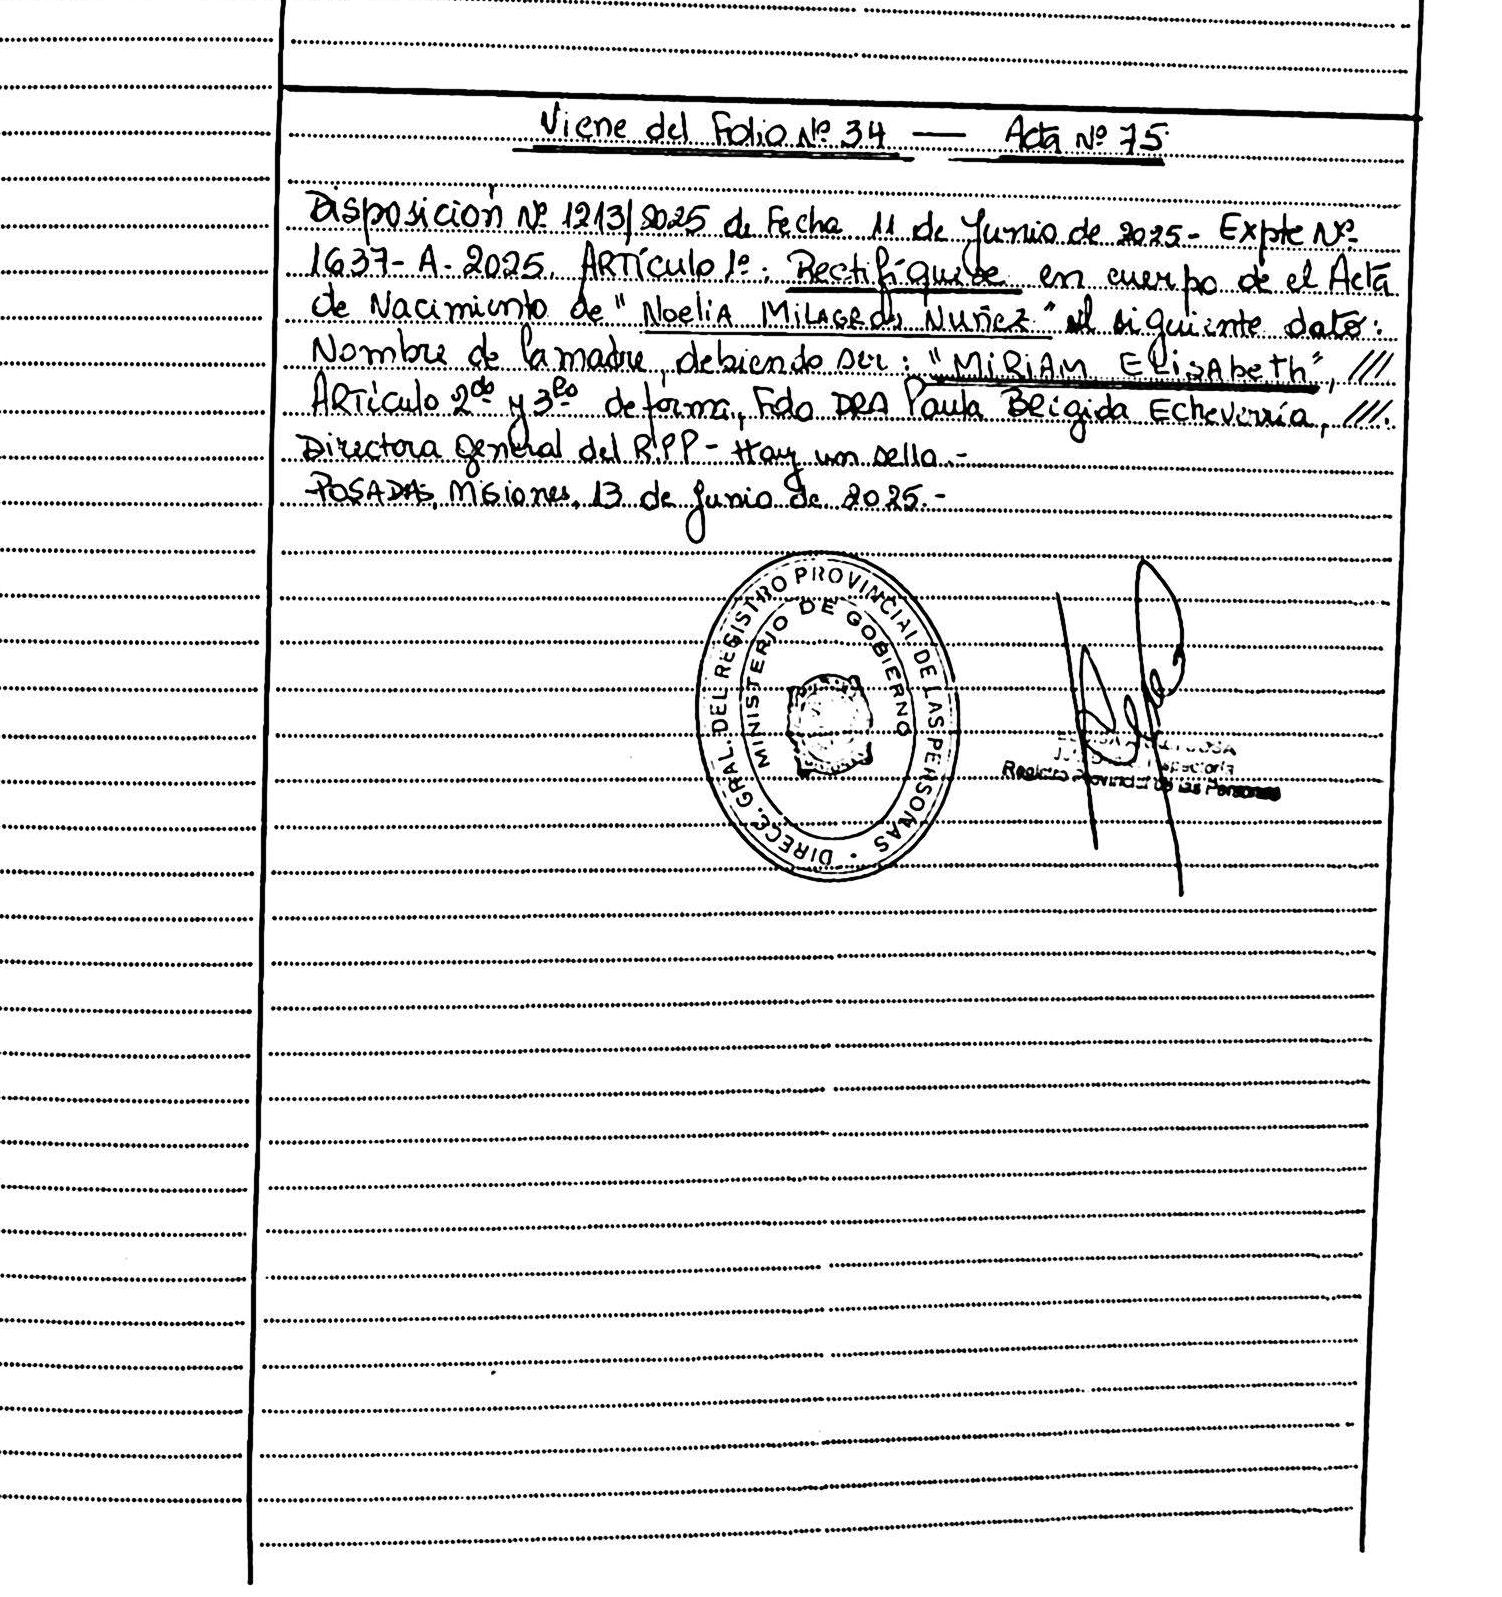 Viene del Folio Nº 34 — Acta Nº 75
Disposición Nº 1213/2025 de Fecha 11 de Junio de 2025- Expte Nº
1637-A-2025. ARTículo 1º: Rectifíquese en cuerpo de el Acta
de Nacimiento de "NoeliA MiLAGRos Nuñez" el siguiente dato:
Nombre de la madre, debiendo ser: "MiRiAM ELisAbeTh", ///
ARTículo 2do y 3ro de forma, Fdo DRA Paula Brigida Echeverría, ///.
Directora general del R.P.P - Hay un sello.-
POSADAS, Misiones, 13 de Junio de 2025.-
DIRECC. GRAL. DEL REGISTRO PROVINCIAL DE LAS PERSONAS
MINISTERIO DE GOBIERNO
Registro Provincial de las Personas